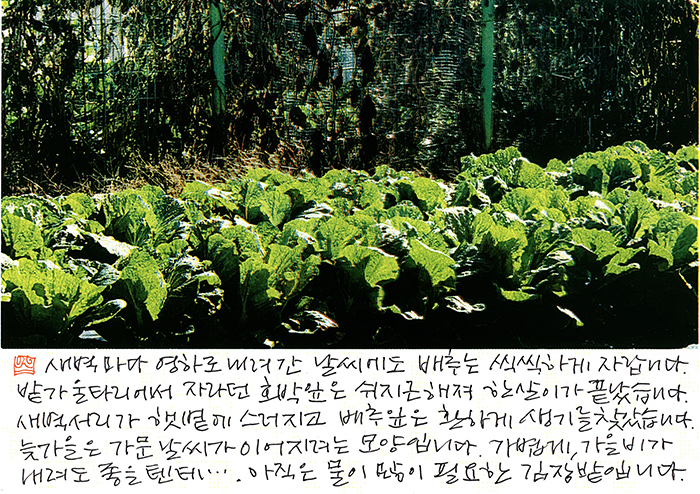 새벽마다 영하로 내려간 날씨에도 배추는 씩씩하게 자랍니다.
밭가 울타리에서 자라던 호박잎은 쉬지근해져 한살이가 끝났습니다.
새벽서리가 햇볕에 스러지고 배추잎은 환하게 생기를 찾았습니다.
늦가을은 가문 날씨가 이어지려는 모양입니다. 가볍게, 가을비가
내려도 좋을텐데…. 아직은 물이 많이 필요한 김장밭입니다.